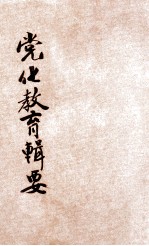 党化教育輯要